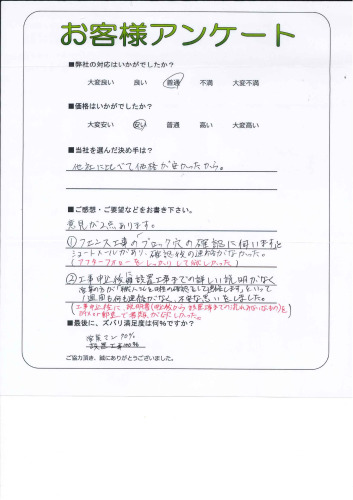 お客様アンケート
■弊社の対応はいかがでしたか?
大変良い 良い 普通 不満 大変不満
■価格はいかがですか?
大変安い 安い 普通 高い 大変高い
■当社を選んだ決め手は?
他社に比べて価格が安かったから。
■ご感想・ご要望などをお書き下さい。
意見が2点あります。
①フェンス工事の「ブロック穴の確認に伺います」と
ショートメールがあり、確認後の連絡がなかった。
(アフターフォローをしっかりして欲しかった)
②工事申込後に設置工事までの詳しい説明がなく
営業の方が「 確認をして連絡します」といって
1週間も何も連絡がなく、不安な思いをしました。
(工事申込後に、説明書( から設置工事までの流れみたいなもの)を
or郵送で 欲しかった。
■最後に、ズバリ満足度は何%ですか?
営業マン 70%
設置工事100%
ご協力頂き、誠にありがとうございました。